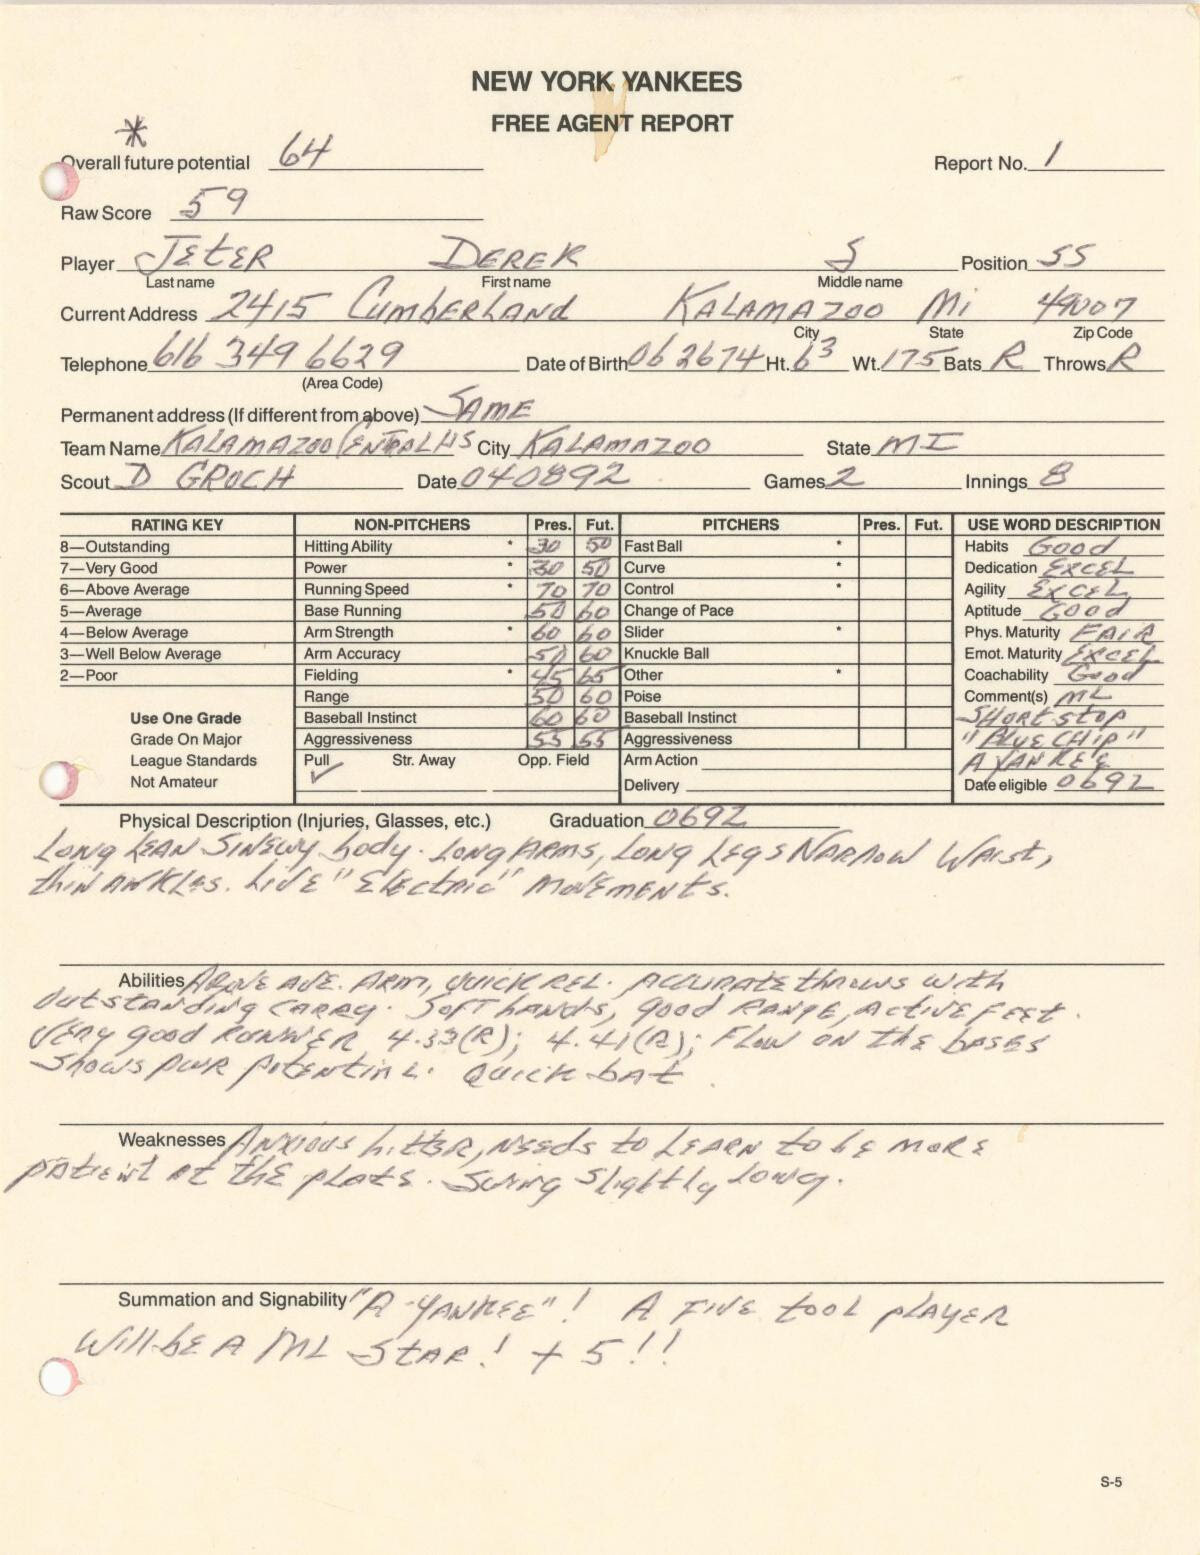 NEW YORK YANKEES
FREE AGENT REPORT
*
Overall future potential 64 Report No. 1
Raw Score 59
Player JEtER DEREK S Position SS
Last name First name Middle name
Current Address 2415 CumbERLAND KALAMAZOO Mi 49007
City State Zip Code
Telephone 616 349 6629 Date of Birth 06 26 74 Ht. 6 3 Wt. 175 Bats R Throws R
(Area Code)
Permanent address (If different from above) SAME
Team Name KALAMAZOO CENTRAL HS City KALAMAZOO State MI
Scout D GROCH Date 040892 Games 2 Innings 8
RATING KEY NON-PITCHERS Pres. Fut. PITCHERS Pres. Fut. USE WORD DESCRIPTION
8—Outstanding Hitting Ability * 30 50 Fast Ball * Habits Good
7—Very Good Power * 30 50 Curve * Dedication EXCEL
6—Above Average Running Speed * 70 70 Control * Agility EXCEL
5—Average Base Running 50 60 Change of Pace Aptitude Good
4—Below Average Arm Strength * 60 60 Slider * Phys. Maturity FAIR
3—Well Below Average Arm Accuracy 50 60 Knuckle Ball Emot. Maturity EXCEL
2—Poor Fielding * 45 65 Other * Coachability Good
Range 50 60 Poise Comment(s) ML
Use One Grade Baseball Instinct 60 60 Baseball Instinct SHORT STOP
Grade On Major Aggressiveness 55 55 Aggressiveness "BLUE CHIP"
League Standards Pull ✓ Str. Away Opp. Field Arm Action A YANKEE
Not Amateur Delivery Date eligible 0692
Physical Description (Injuries, Glasses, etc.) Graduation 0692
LONG LEAN SINEWY body. LONG ARMS, LONG LEGS NARROW WAist,
thIN ANKLES. LIVE "ELEctRic" MOVEMENts.
Abilities ABOVE AVE. ARM, QUICK REL. ACCURATE thROWS WIth
OUtSTANDING CARRY. SOFT hANDS, good RANGE, ACtIVE FEEt.
VERY good RUNNER 4.33(R); 4.41(R); FLOW ON thE bASES
Shows PWR POtENtIAL. QUICK bAt.
Weaknesses ANXIOUS hittER, NEEds to LEARN to bE MORE
PAtiENt At thE PLAtE. SWiNg SLightLy LONg.
Summation and Signability "A YANKEE"! A FIVE tOOL pLAYER
WiLL bE A ML STAR! + 5!!
S-5